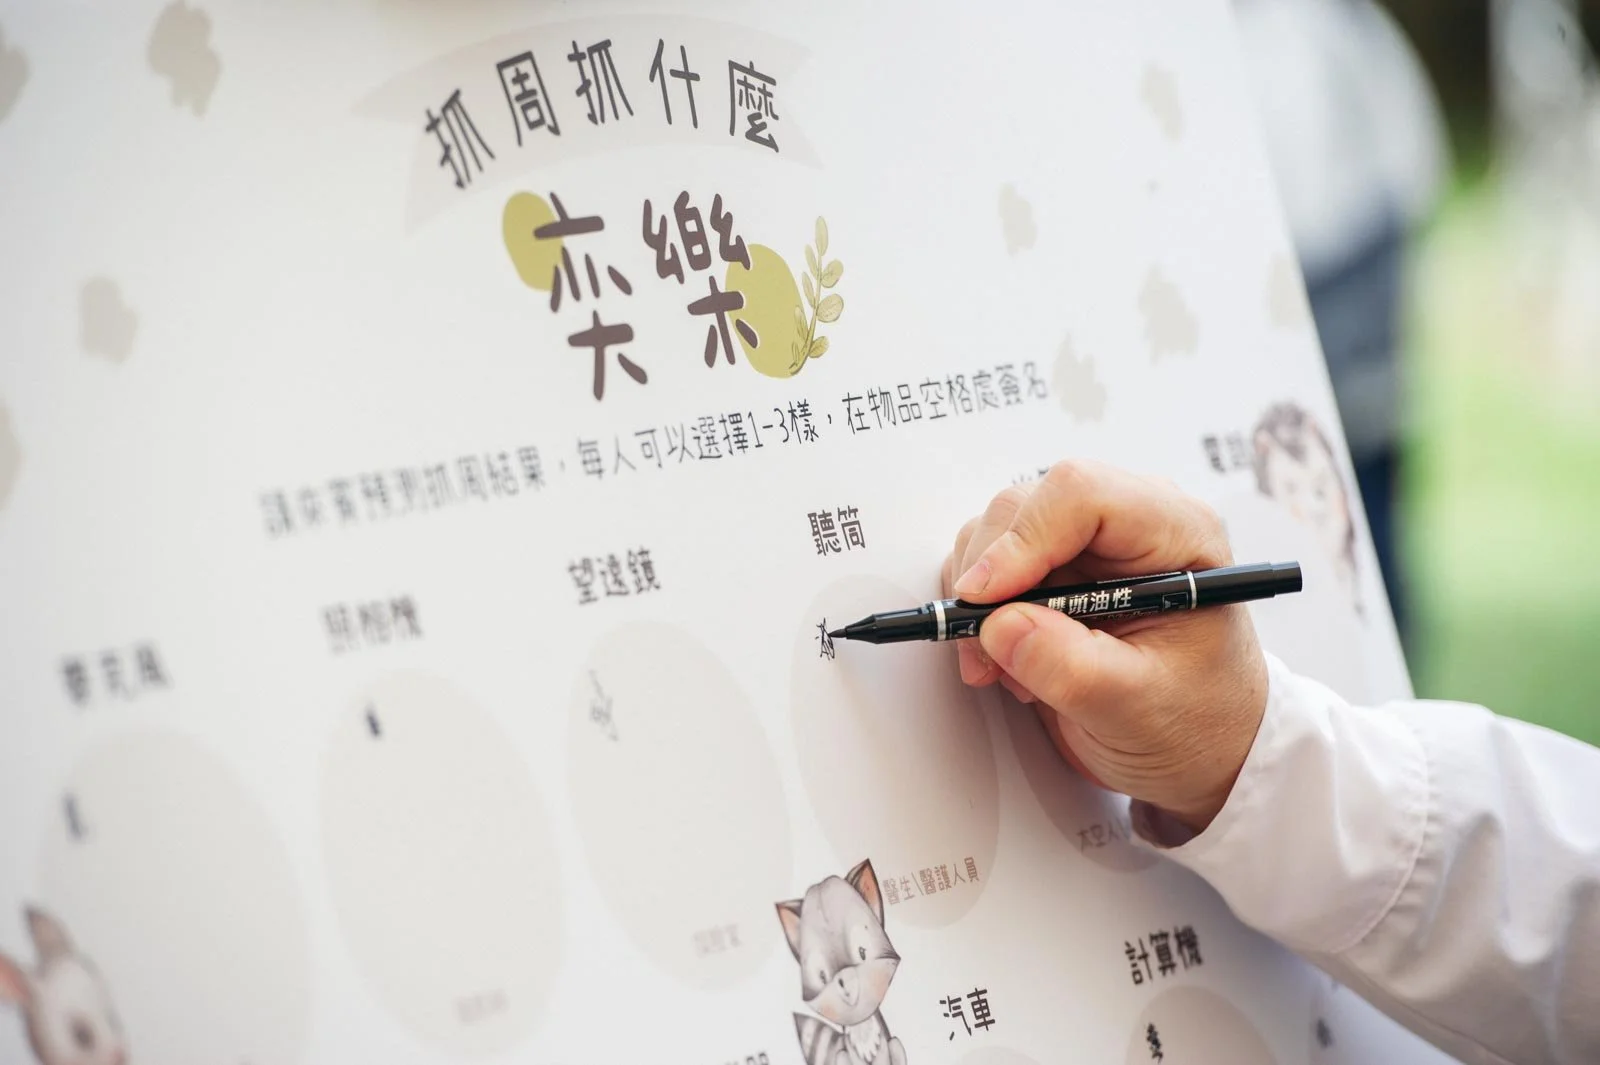 抓周抓什麼
奕樂
請來賓預測抓周結果，每人可以選擇1-3樣，在物品空格處簽名
麥克風
照相機
望遠鏡
聽筒
電話
雙頭油性
醫生\醫護人員
太空人\
汽車
計算機